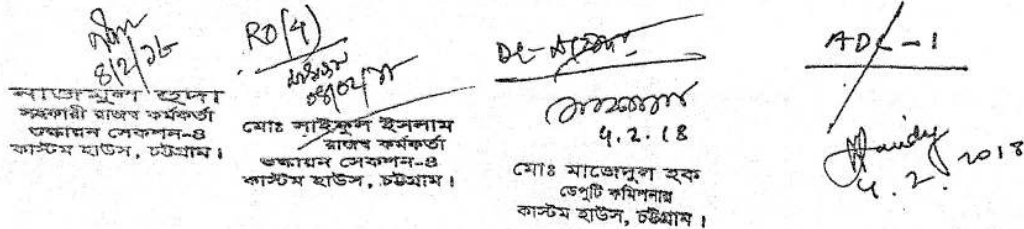 ৪/২/১৮
নাজমুল হুদা
সহকারী রাজস্ব কর্মকর্তা
শুল্কায়ন সেকশন-৪
কাস্টম হাউস, চট্টগ্রাম।
RO(4)
০৪/০২/১৮
মোঃ সাইফুল ইসলাম
রাজস্ব কর্মকর্তা
শুল্কায়ন সেকশন-৪
কাস্টম হাউস, চট্টগ্রাম।
DC-
4.2.18
মোঃ মাজেদুল হক
ডেপুটি কমিশনার
কাস্টম হাউস, চট্টগ্রাম।
ADC-1
4.2.2018